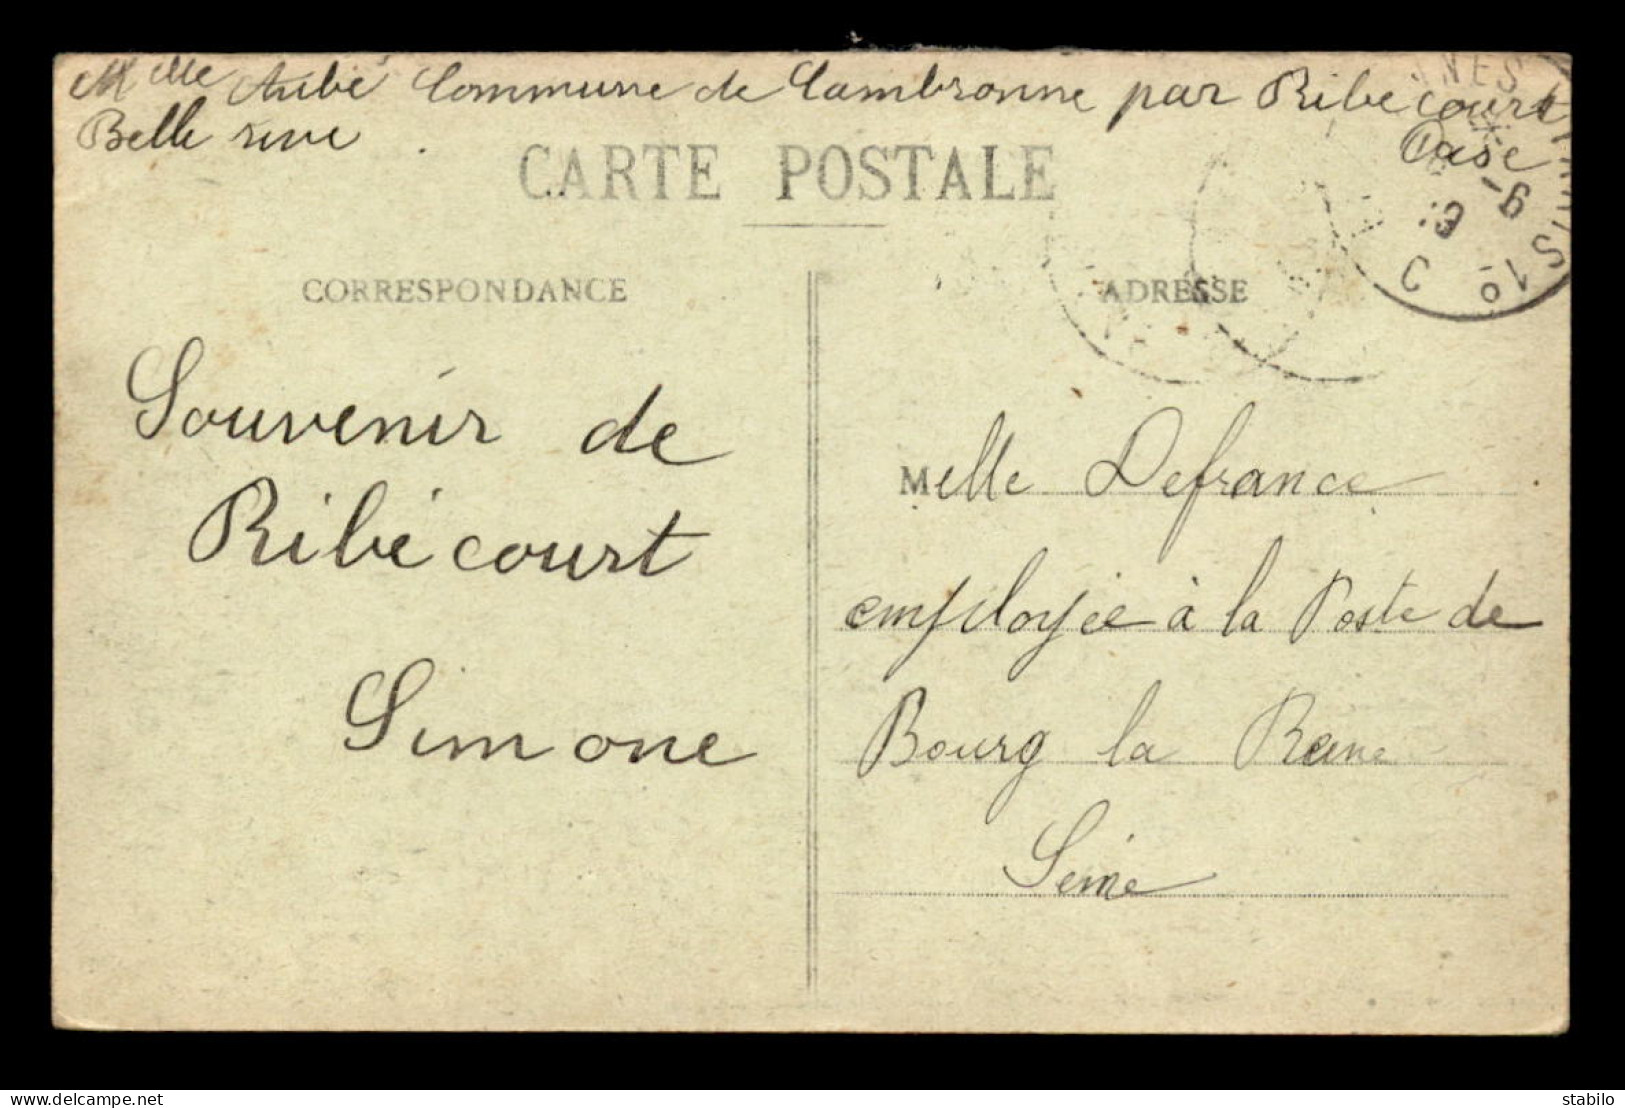 Mlle Aubé Commune de Cambronne par Ribécourt
Belle rive
Oise
CARTE POSTALE
CORRESPONDANCE
ADRESSE
Souvenir de
Ribécourt
Simone
Melle Defrance
employée à la Poste de
Bourg la Reine
Seine
delcampe.net
stabilo